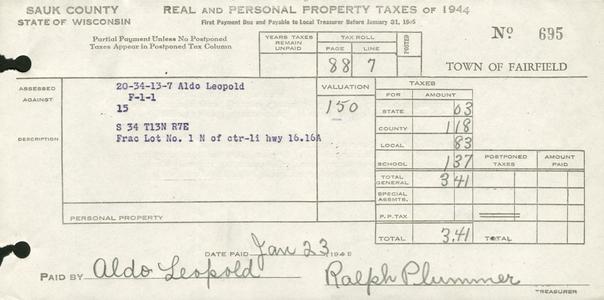 SAUK COUNTY
STATE OF WISCONSIN
REAL AND PERSONAL PROPERTY TAXES OF 1944
First Payment Due and Payable to Local Treasurer Before January 31, 1945
No 695
Partial Payment Unless No Postponed
Taxes Appear in Postponed Tax Column
YEARS TAXES REMAIN UNPAID
TAX ROLL
PAGE LINE
POSTED
88 7
TOWN OF FAIRFIELD
ASSESSED AGAINST
20-34-13-7 Aldo Leopold
F-1-1
15
VALUATION
150
DESCRIPTION
S 34 T13N R7E
Frac Lot No. 1 N of ctr-li hwy 16.16A
TAXES
FOR AMOUNT
STATE 03
COUNTY 118
LOCAL 83
SCHOOL 137 POSTPONED TAXES AMOUNT PAID
TOTAL GENERAL 341
SPECIAL ASSMTS.
P.P. TAX
TOTAL 3.41 TOTAL
PERSONAL PROPERTY
DATE PAID Jan 23 194
PAID BY Aldo Leopold Ralph Plummer
TREASURER